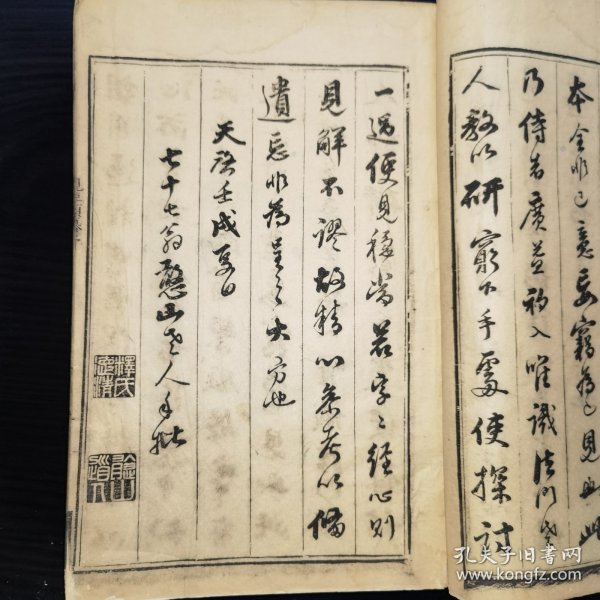 本全非已意妄竊為己見也此
乃侍者廣益初入唯識法門
人教以研窮下手處使探討
一過便見穩當若字字經心則
見解不謬故精心参考以備
遺忘非為呈之大方也
天啓壬戌夏日
七十七翁憨山老人手批
釋氏德清
憨山道人
孔夫子旧书网
www.kongfz.com